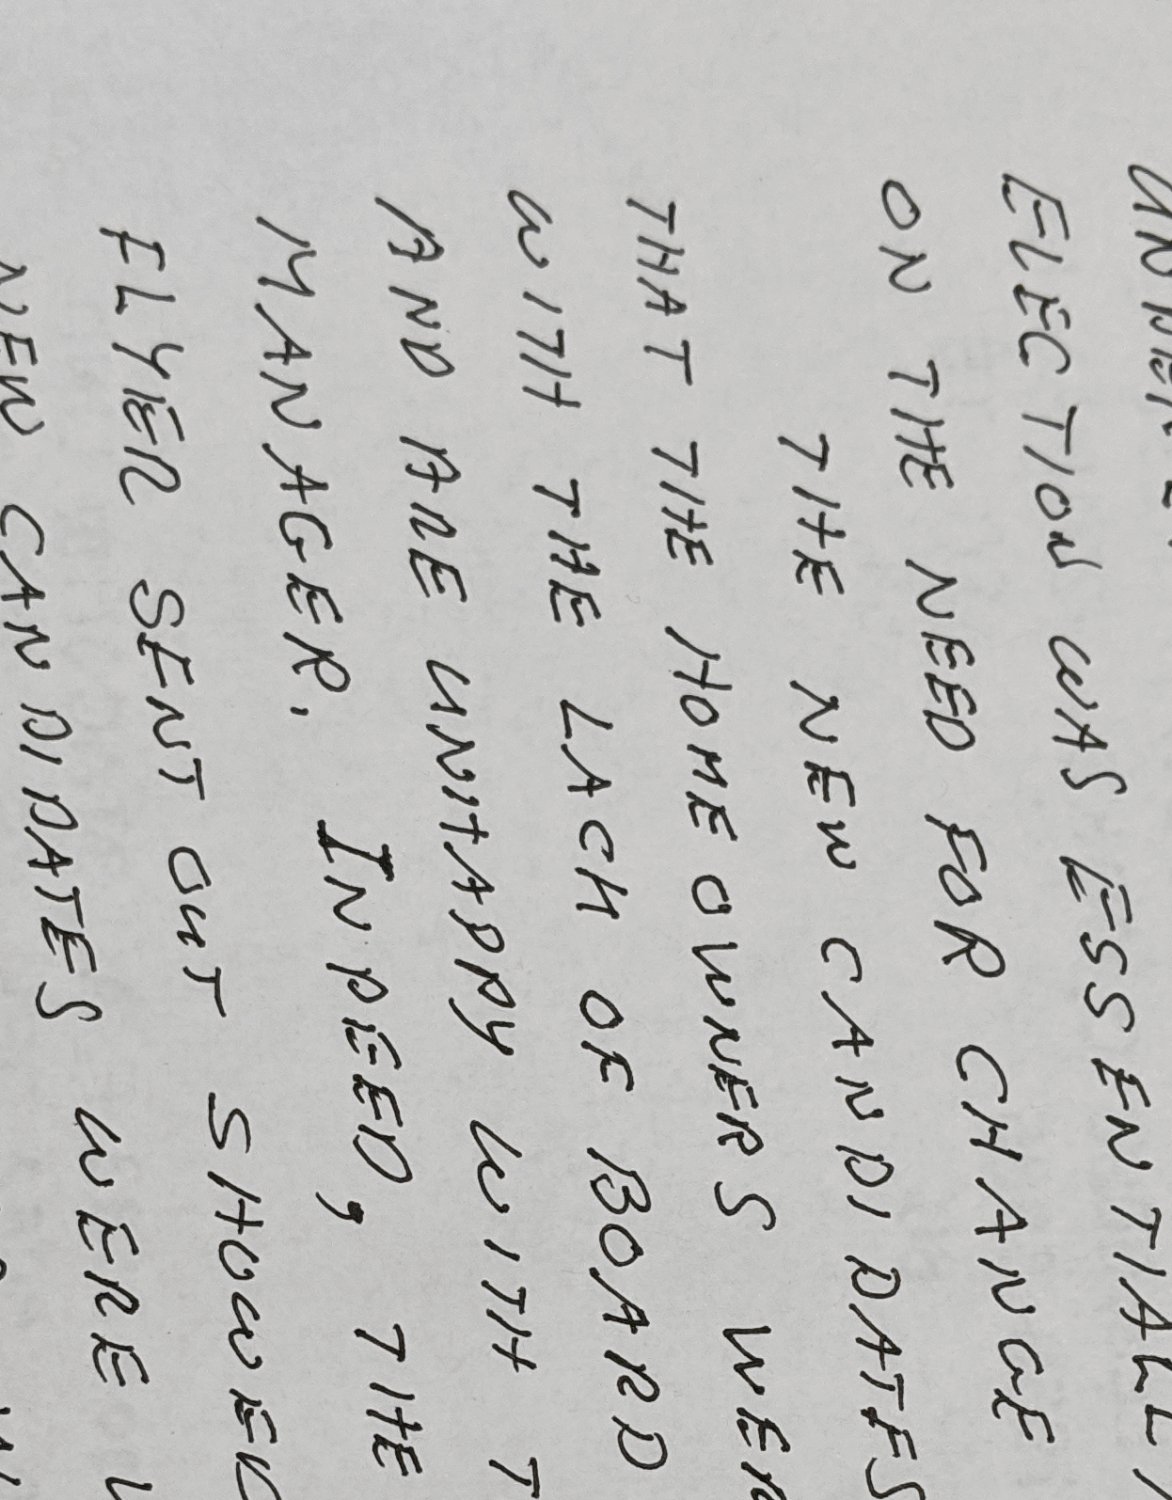 ELECTION WAS ESSENTIALL
ON THE NEED FOR CHANGE
THE NEW CANDIDATES
THAT THE HOMEOWNERS WER
WITH THE LACK OF BOARD
AND ARE UNHAPPY WITH T
MANAGER. INDEED, THE
FLYER SENT OUT SHOWED
NEW CANDIDATES WERE